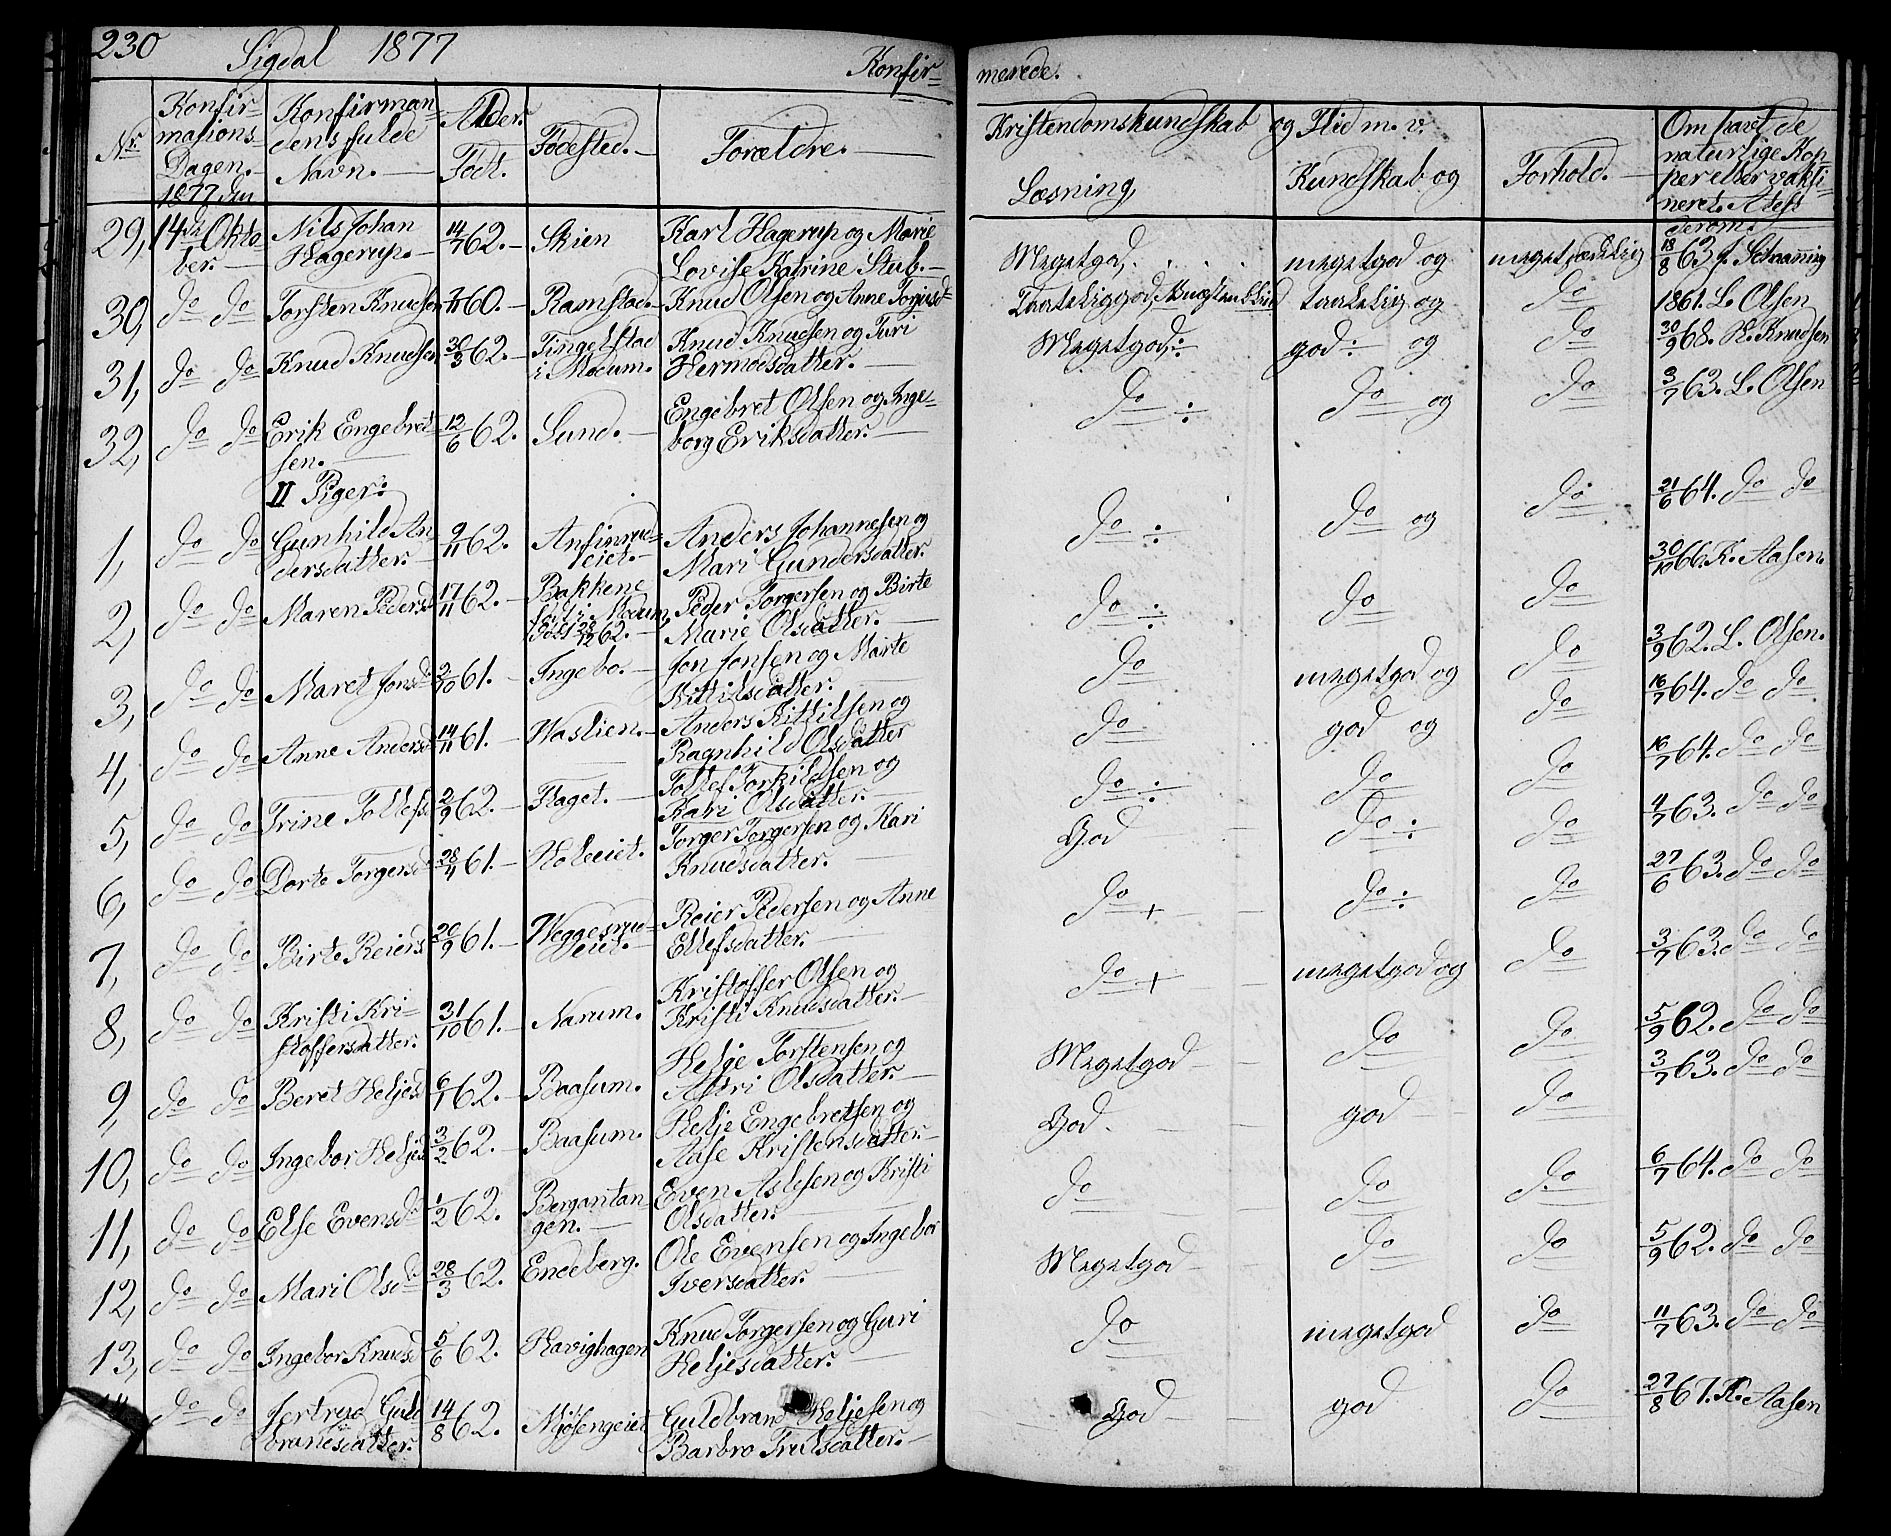 230 Sigdal 1877 Konfir-
merede.
Nr. Konfir-
mations-
Dagen.
1877 den
Konfirman-
dens fulde
Navn.
Alder.
Født.
Fødested.
Forældre.
Kristendomskundskab og Flid m. v.
Læsning,
Kundskab og
Forhold.
Om havt de
naturlige Kop-
per eller vakci-
neret. Attest
derom.
29, 14de Okto-
ber.
Nils Johan
Hagerup.
14/7 62.
Skien
Karl Hagerup og Marie
Lovise Katrine Stub.
Megetgod,
megetgod og
meget sædelig
18/8 63 f. Schanning
30, do do Torsten Knudsen
60. Ramstad. Knud Olsen og Anne
Taaleliggod,
taalelig og
do
1861. L. Olsen
31, do do Knud Knudsen 30/3 62. Tingelstad
i Modum.
Knud Knudsen og Turi
Hermodsdatter.
Megetgod ÷
god ÷ og
do
30/9 68. K. Knudsen
32, do do Erik Engebret-
sen.
12/6 62. Sund. Engebret Olsen og Inge-
borg Eriksdatter.
do ÷
do og
do
3/7 63. L. Olsen
II Piger:
1, do do Gunhild An-
dersdatter.
9/11 62. Anfinrud-
eiet.
Anders Johannesen og
Mari Gundersdatter.
do ÷
do og
do
21/6 64. do do
2, do do Maren Pedersd 17/11 62. Bakkene
i Modum,
62.
Peder Torgersen og Birte
Marie Olsdatter.
do ÷
do
do
30/10 66. K. Aasen.
3, do do Maret Jonsd 2/10 61. Ingebo. Jon Jonsen og Marte
Kittilsdatter.
do
megetgod og
do
3/9 62. L. Olsen.
4, do do Anne Andersd 14/11 61. Haslien. Anders Kittilsen og
Ragnhild Olsdatter
do
god og
do
16/7 64. do do.
5, do do Trine Tollefsd 2/9 62. Flaget. Tollef Torkildsen og
Kari Olsdatter.
do ÷
do
do
16/7 64. do do
6, do do Dorte Torgersd 28/4 61. Holeeiet. Torger Torgersen og Kari
Knudsdatter.
God
do ÷
do
4/7 63. do do
7, do do Birte Reiersd 20/9 61. Heggesrud-
eiet.
Reier Pedersen og Anne
Ellefsdatter.
do +
do ÷
do
27/6 63. do do
8, do do Kristi Kri-
stoffersdatter.
31/10 61. Narum. Kristoffer Olsen og
Kristi Knudsdatter.
do +
megetgod og
do
3/7 63. do do
9, do do Beret Heljesd 6/1 62. Baasum. Helje Torstensen og
Astri Olsdatter.
Megetgod
do
do
5/9 62. do do
10, do do Ingebor Heljesd 3/2 62. Baasum. Helje Engebretsen og
Aase Kristensdatter.
God.
god
do
3/7 63. do do
11, do do Else Evensd 1/2 62. Bergantan-
gen.
Even Aslesen og Kristi
Olsdatter.
do
do
do
6/7 64. do do
12, do do Mari Olsd 28/3 62. Eneberg. Ole Evensen og Ingebor
Iversdatter.
Megetgod
do
do
5/9 62. do do
13, do do Ingebor Knudsd 5/6 62. Havighagen Knud Torgersen og Guri
Heljesdatter.
do
megetgod
do
11/7 63. do do
do do Jertrud Guld-
brandsdatter.
14/8 62. Mjøsengeiet Guldbrand Heljesen og
Barbro Trulsdatter.
God
god
do
27/8 67. K. Aasen